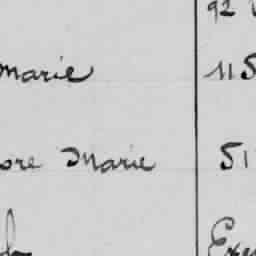 92
Marie 115
ore Marie 51